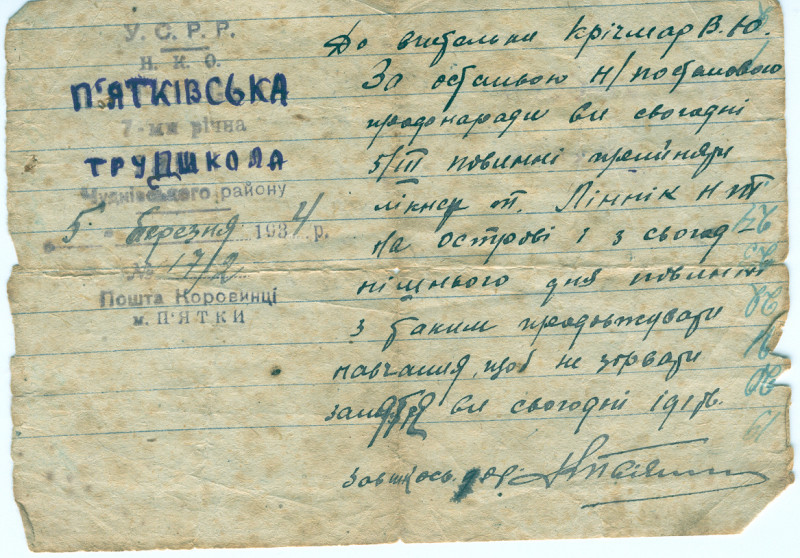 У. С. Р. Р.
Н. К. О.
П'ЯТКІВСЬКА
7-ми річна
ТРУДШКОЛА
Чуднівського району
" 5 " березня 1934 р.
№ 17/2
Пошта Коровинці
м. П'ЯТКИ
До вчительки Крічмар В. Ю.
За останьою н/постановою
ви сьогодні
5/III повинні прийняти
Ліннік
на острові і з сьогод-
нішнього дня повинні
з таким продовжувати
навчання, щоб не зірвати
ви сьогодні